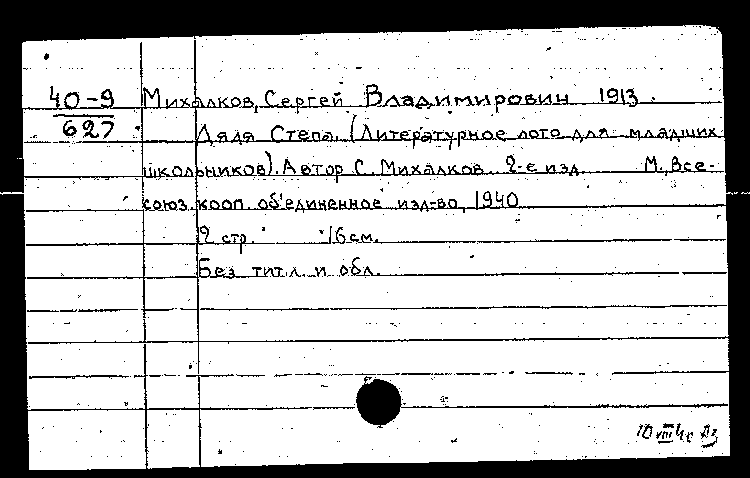 40-9 Михалков, Сергей Владимирович 1913.
627 Дядя Степа. (Литературное лото для младших
школьников). Автор С. Михалков. 2-е изд. М., Все-
союз. кооп. об'единенное изд-во, 1940
2 стр. 16 см.
Без тит. л. и обл.
10 VIII 40